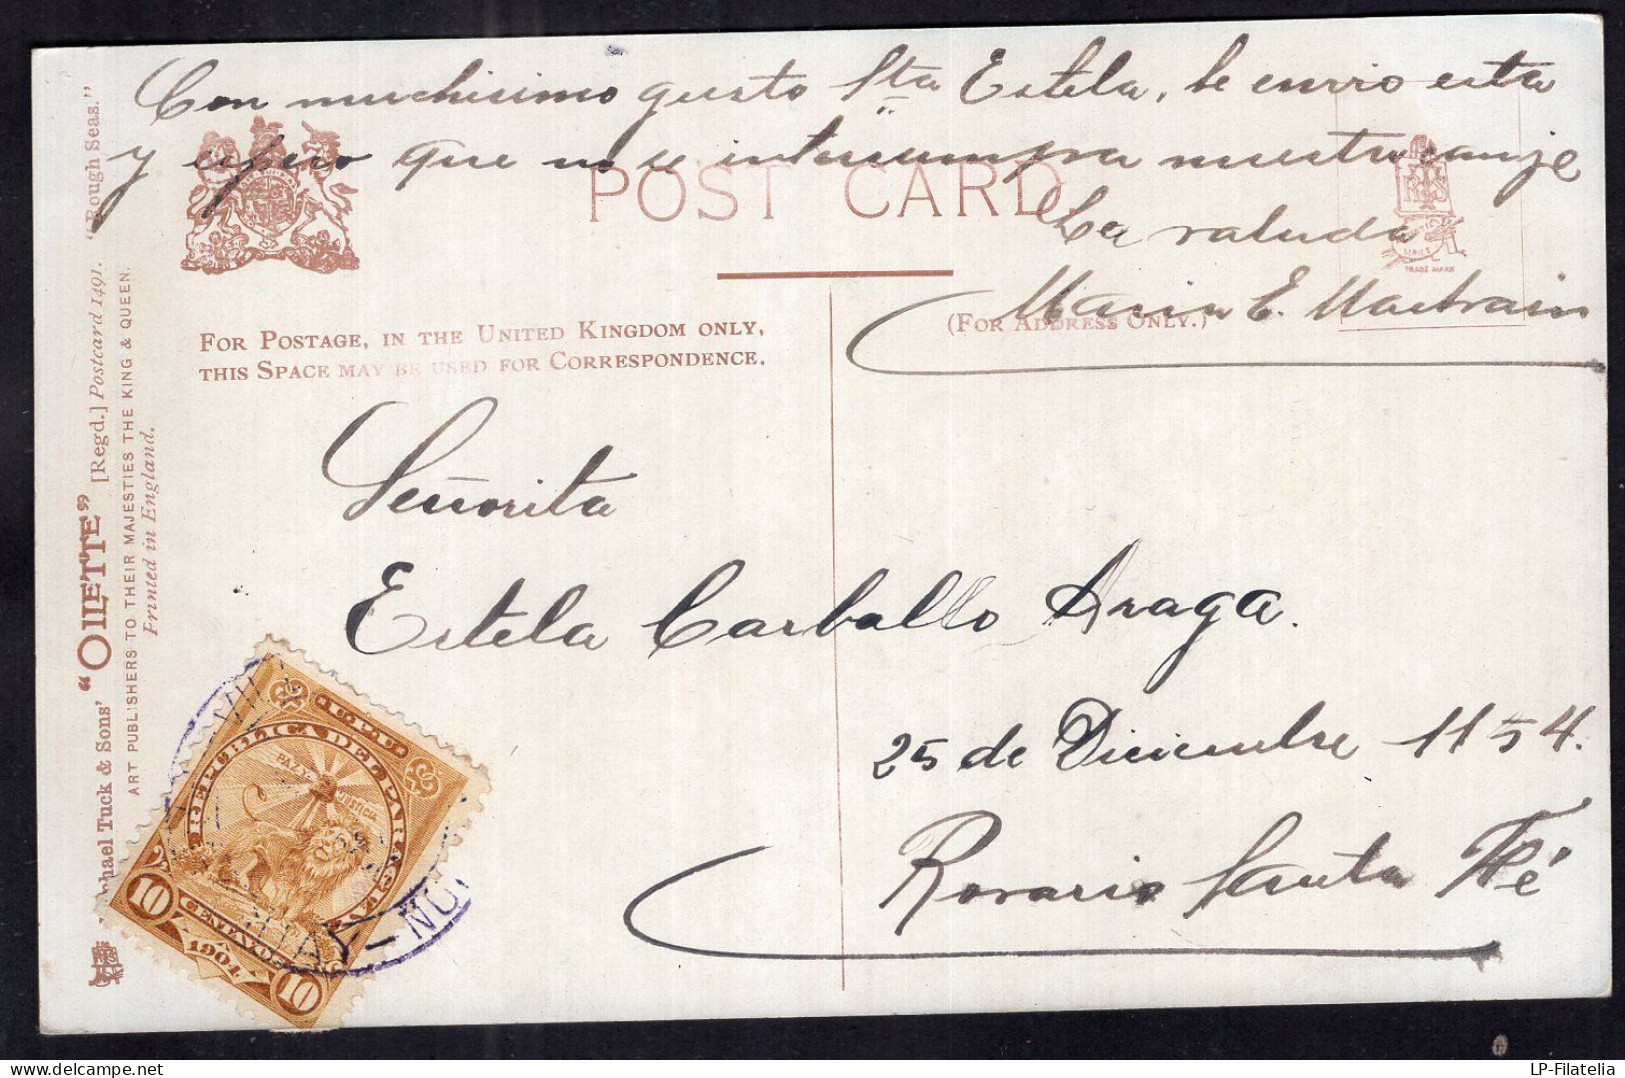 Con muchisimo gusto Sta Estela, le envio esta
y espero que no se interrumpra nuestro canje
La saluda
Maria E.
POST CARD
TRADE MARK
FOR POSTAGE, IN THE UNITED KINGDOM ONLY,
THIS SPACE MAY BE USED FOR CORRESPONDENCE.
(FOR ADDRESS ONLY.)
Señorita
Estela Carballo Araga.
25 de Diciembre 1154.
Rosario Santa Fé
hael Tuck & Sons' "OILETTE" [Regd.] Postcard 1491. "Rough Seas."
ART PUBLISHERS TO THEIR MAJESTIES THE KING & QUEEN.
Printed in England.
REPUBLICA DEL PARAGUAY
PAZ Y JUSTICIA
10 CENTAVOS 10
1904
LP-Filatelia